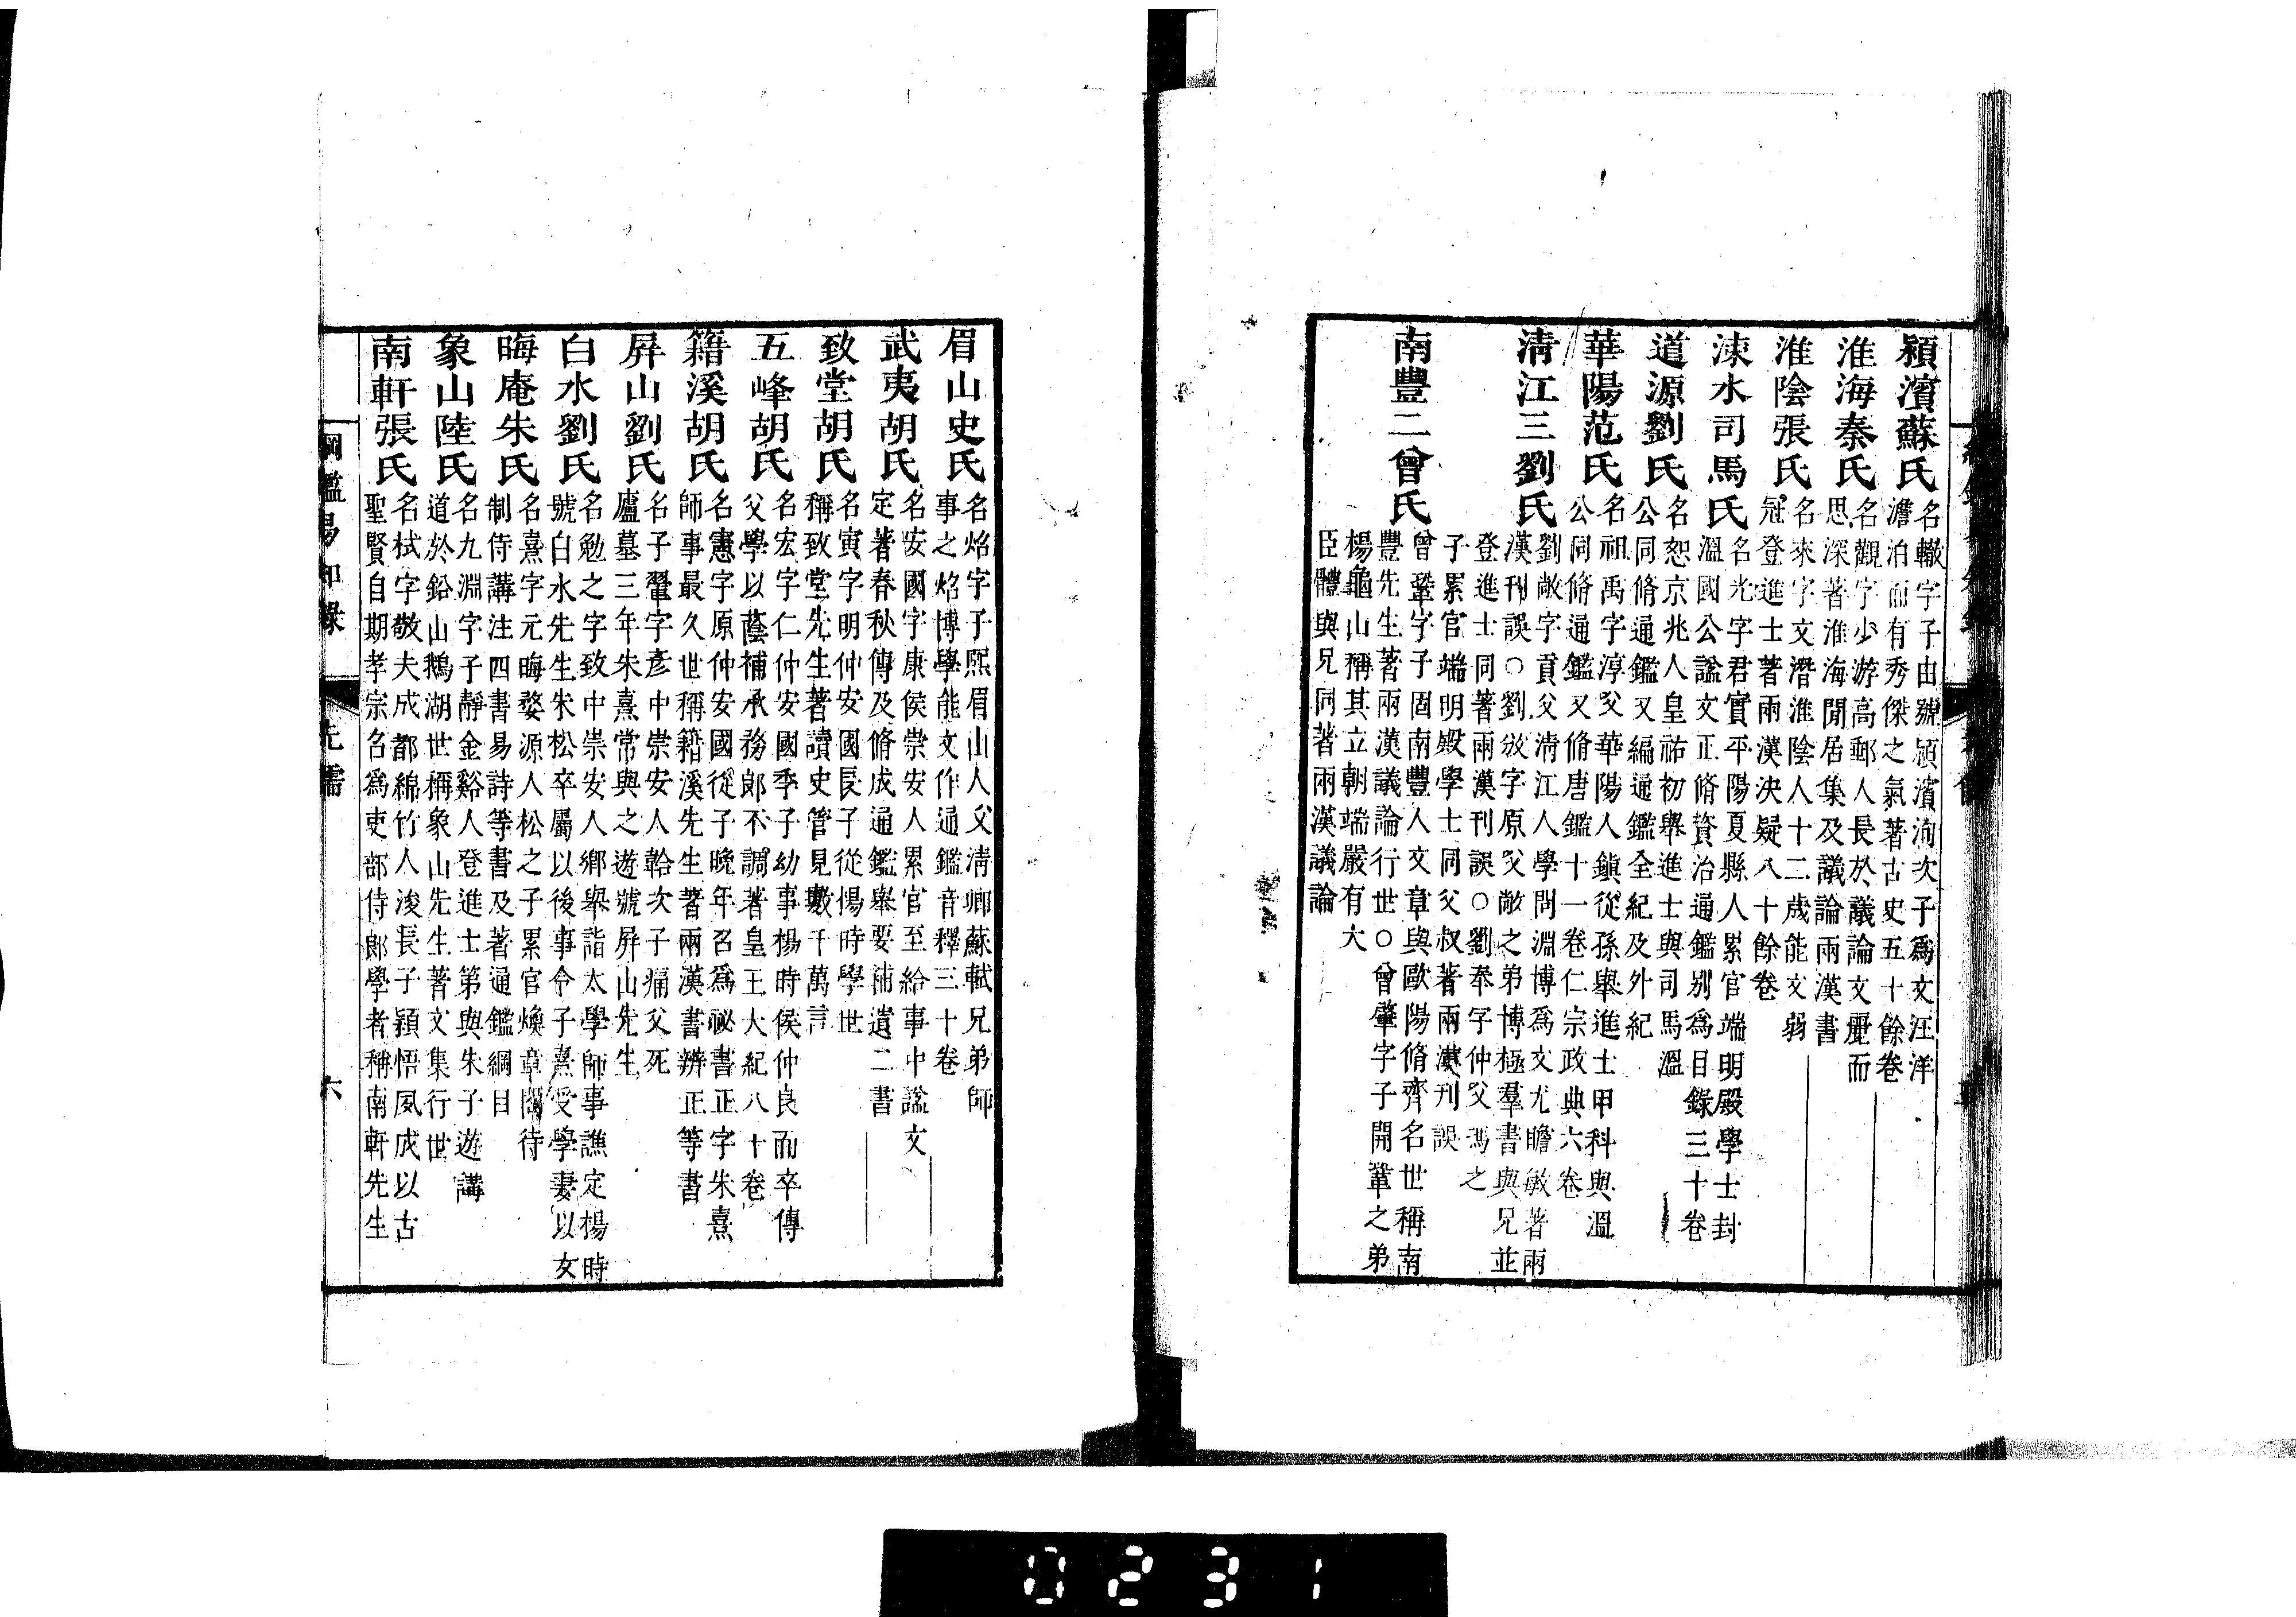 潁濱蘇氏
名轍字子由號潁濱洵次子為文汪洋
澹泊而有秀傑之氣著古史五十餘卷
淮海秦氏
名觀字少游高郵人長於議論文麗而
思深著淮海閒居集及議論兩漢書
淮陰張氏
名來字文潛淮陰人十二歲能文弱
冠登進士著兩漢決疑八十餘卷
涑水司馬氏
名光字君實平陽夏縣人累官端明殿學士封
溫國公諡文正脩資治通鑑別為目錄三十卷
道源劉氏
名恕京兆人皇祐初舉進士與司馬溫
公同脩通鑑又編通鑑全紀及外紀
華陽范氏
名祖禹字淳父華陽人鎮從孫舉進士甲科與溫
公同脩通鑑又脩唐鑑十一卷仁宗政典六卷
清江三劉氏
劉敞字貢父清江人學問淵博為文尤贍敏著兩
漢刊誤○劉攽字原父敞之弟博極羣書與兄並
登進士同著兩漢刊誤○劉奉字仲父馮之
子累官端明殿學士同父叔著兩漢刊誤
南豐二曾氏
曾鞏字子固南豐人文章與歐陽脩齊名世稱南
豐先生著兩漢議論行世○曾肇字子開鞏之弟
楊龜山稱其立朝端嚴有大
臣體與兄同著兩漢議論
眉山史氏
名炤字子熙眉山人父清卿蘇軾兄弟師
事之炤博學能文作通鑑音釋三十卷
武夷胡氏
名安國字康侯崇安人累官至給事中諡文
定著春秋傳及脩成通鑑舉要補遺二書
致堂胡氏
名寅字明仲安國長子從楊時學世
稱致堂先生著讀史管見數千萬言
五峰胡氏
名宏字仁仲安國季子幼事楊時侯仲良而卒傳
父學以蔭補承務郎不調著皇王大紀八十卷
籍溪胡氏
名憲字原仲安國從子晚年召為祕書正字朱熹
師事最久世稱籍溪先生著兩漢書辨正等書
屏山劉氏
名子翬字彥中崇安人韐次子痛父死
廬墓三年朱熹常與之遊號屏山先生
白水劉氏
名勉之字致中崇安人鄉舉詣太學師事譙定楊時
號白水先生朱松卒屬以後事令子熹受學妻以女
晦庵朱氏
名熹字元晦婺源人松之子累官煥章閣待
制侍講注四書易詩等書及著通鑑綱目
象山陸氏
名九淵字子靜金谿人登進士第與朱子遊講
道於鉛山鵝湖世稱象山先生著文集行世
南軒張氏
名栻字敬夫成都綿竹人浚長子穎悟夙成以古
聖賢自期孝宗名為吏部侍郎學者稱南軒先生
綱鑑易知錄
先儒
六
0231